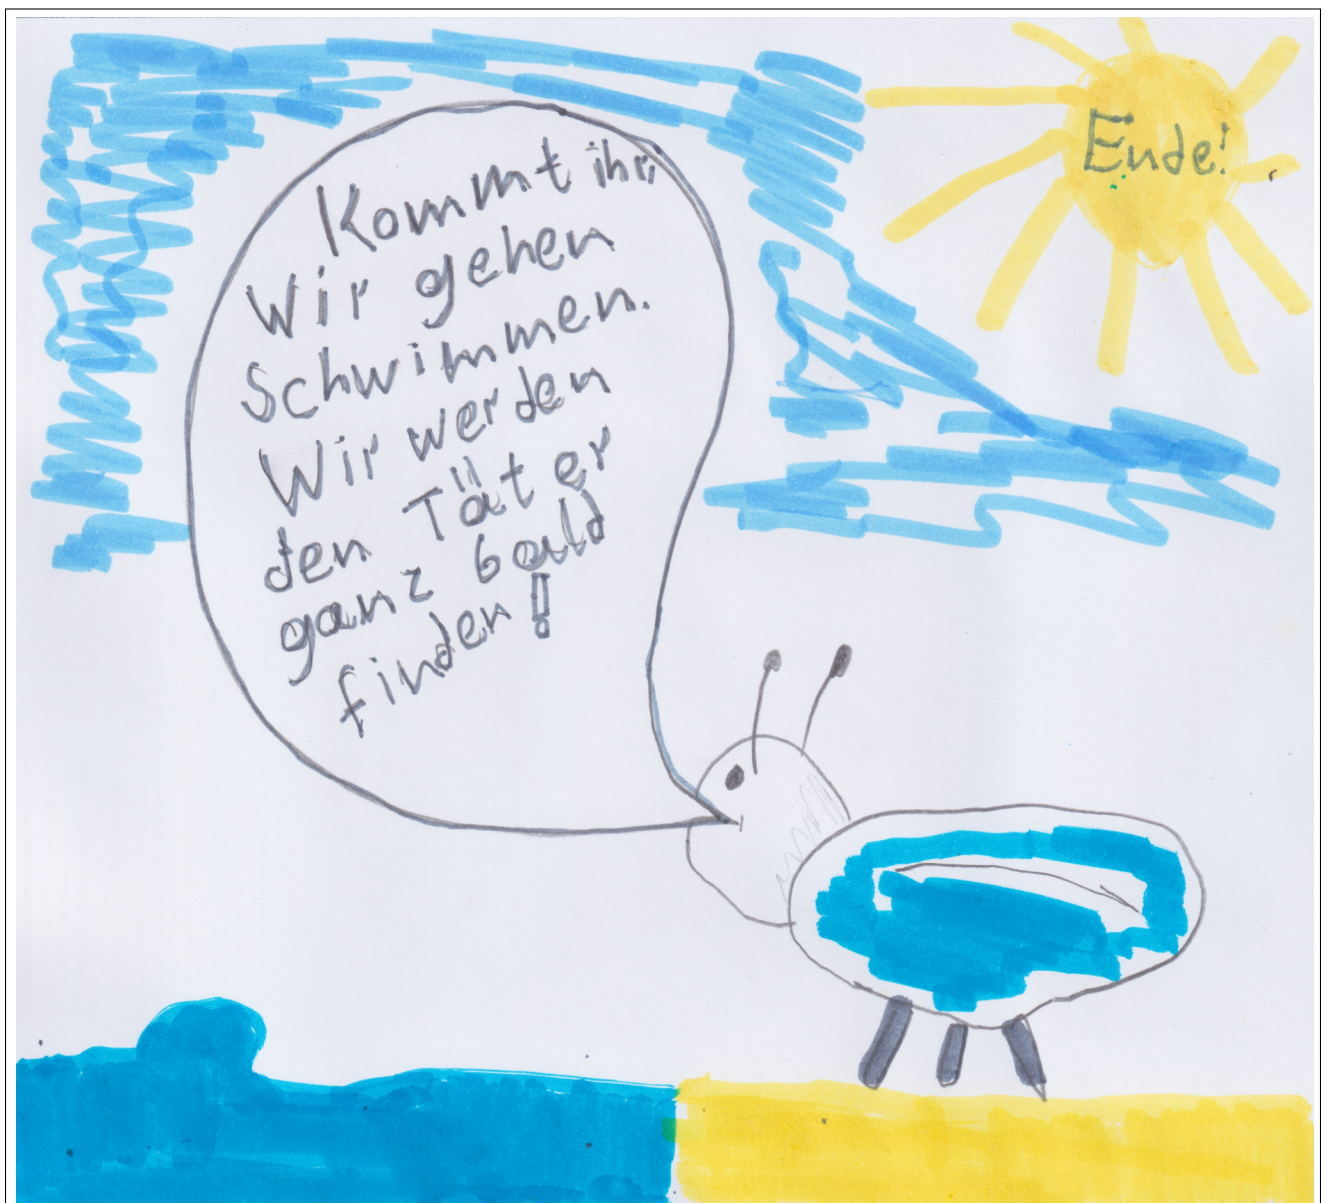 Kommt ihr,
Wir gehen
Schwimmen.
Wir werden
den Täter
ganz bald
finden!
Ende!